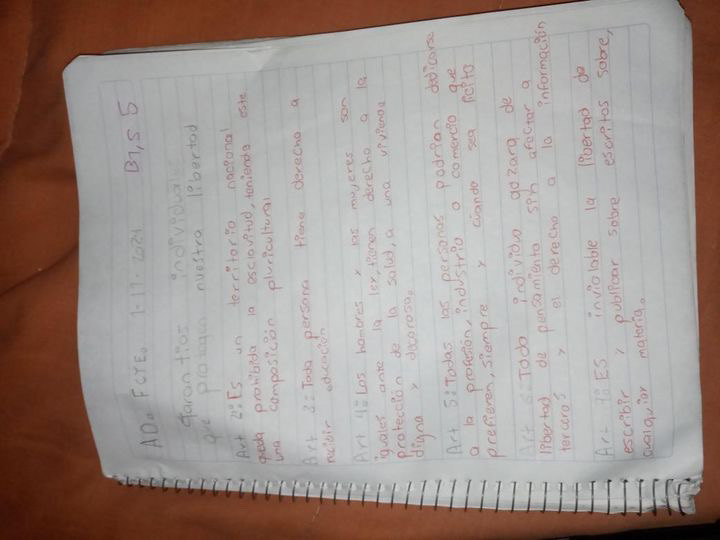 AD. FCYE. 1-11-2021 B1,S 5
Garantias individuales
que protegen nuestra libertad
Art 2: Es un territorio nacional
queda prohibida la esclavitud, teniendo este
una composición pluricultural
Art 3: Toda persona tiene derecho a
recibir educación
Art 4: Los hombres y las mujeres son
iguales ante la ley, tienen derecho a la
protección de la salud, a una vivienda
digna y decorosa.
Art 5: Todas las personas podrian dedicarse
a la profeción, industrio o comercio que
prefieren, siempre y cuando sea licito
Art 6: Todo individuo gozara de
libertad de pensamiento sin afectar a
terceros y el derecho a la información
Art 7: Es inviolable la libertad de
escribir y publicar sobre escritos sobre,
cualquier materia.